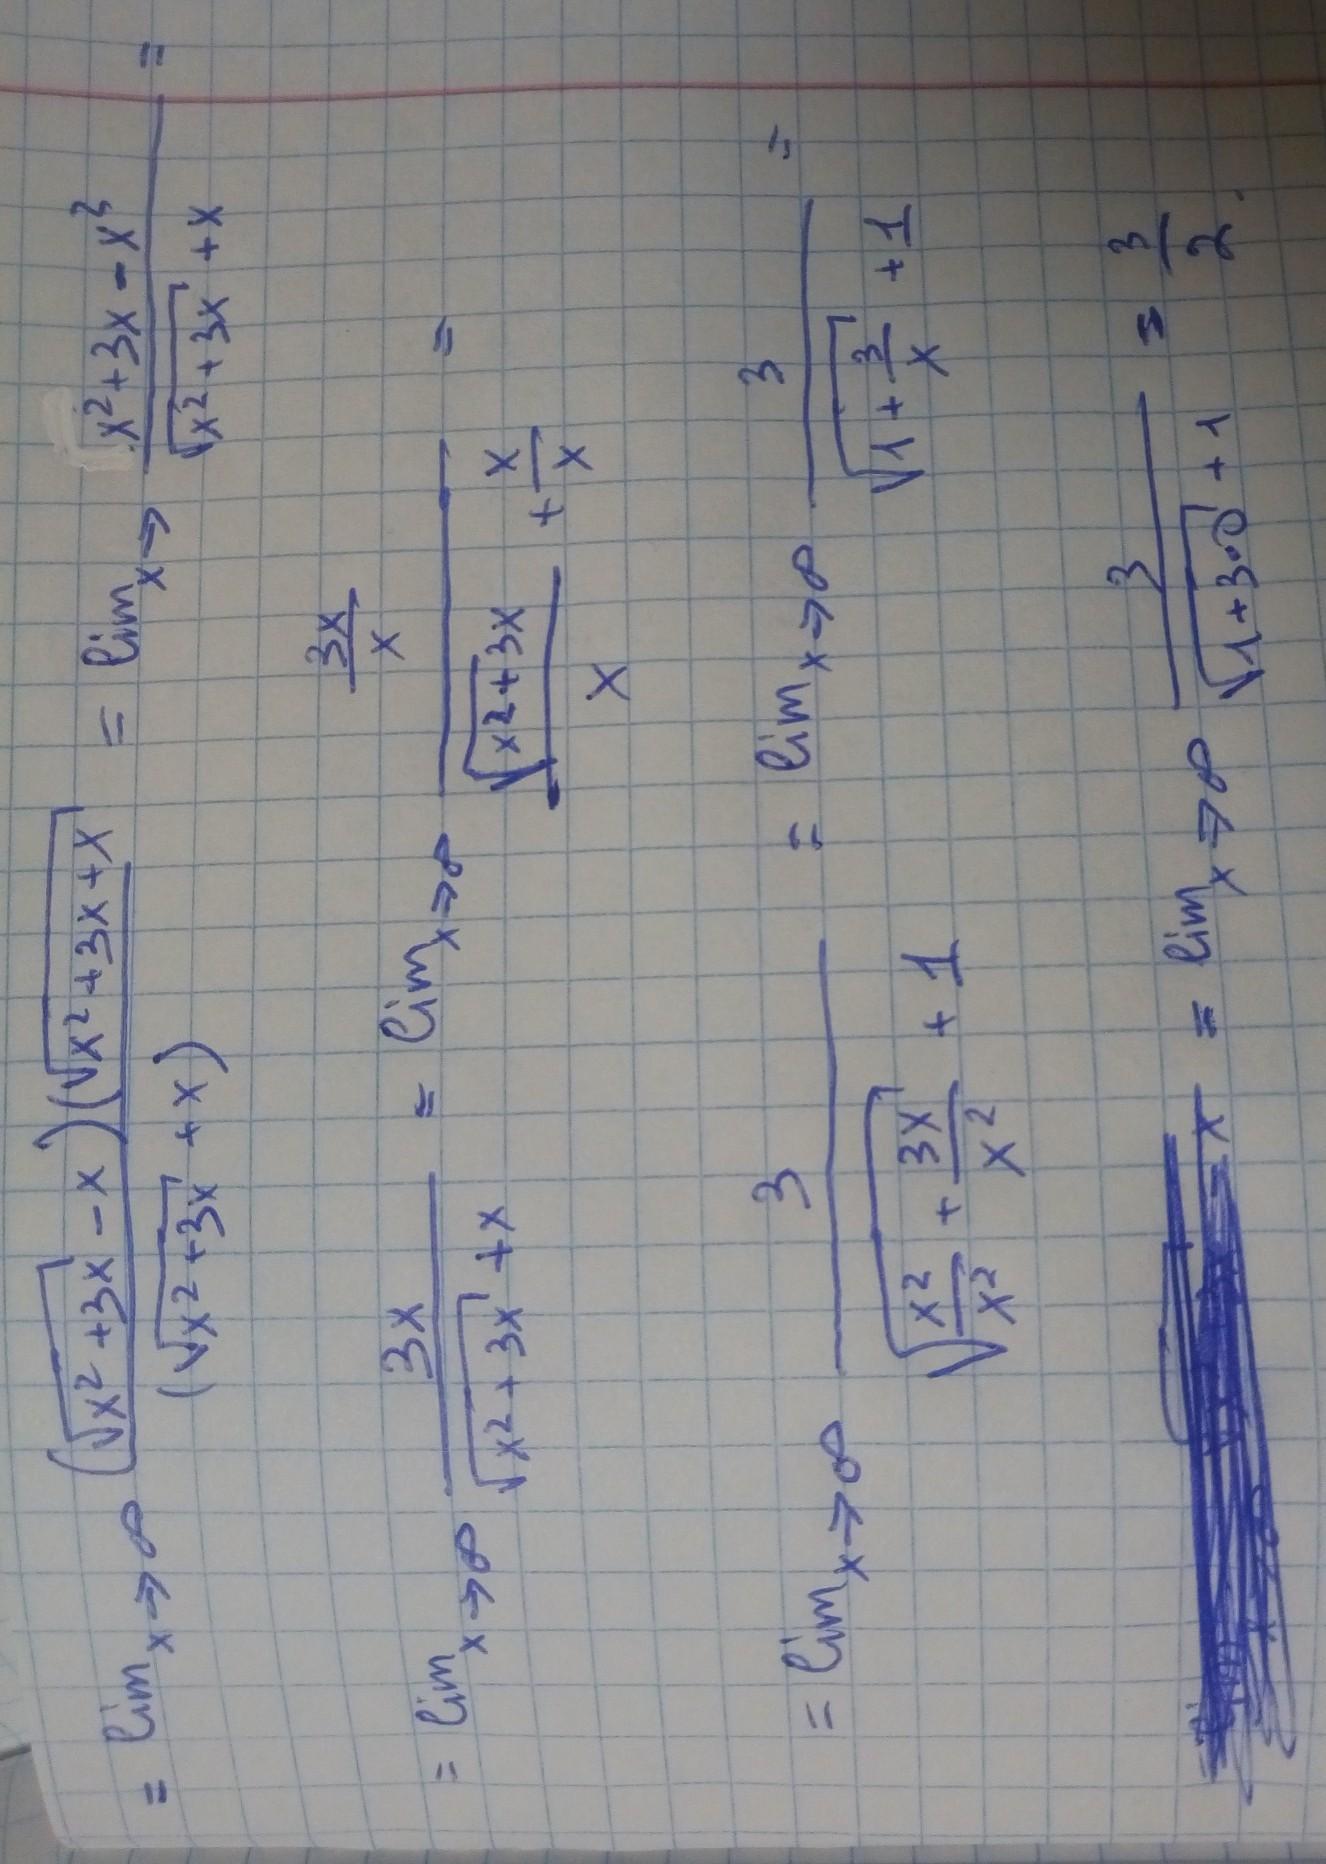 = lim x→∞ (√(x² + 3x) - x)(√(x² + 3x + x) / (√(x² + 3x) + x) = lim x→ (x² + 3x - x²) / (√(x² + 3x) + x) =
= lim x→∞ 3x / (√(x² + 3x) + x) = lim x→∞ (3x/x) / (√(x² + 3x)/x + x/x) =
= lim x→∞ 3 / (√(x²/x² + 3x/x²) + 1) = lim x→∞ 3 / (√(1 + 3/x) + 1) =
x = lim x→∞ 3 / (√(1 + 3·0) + 1) = 3/2.